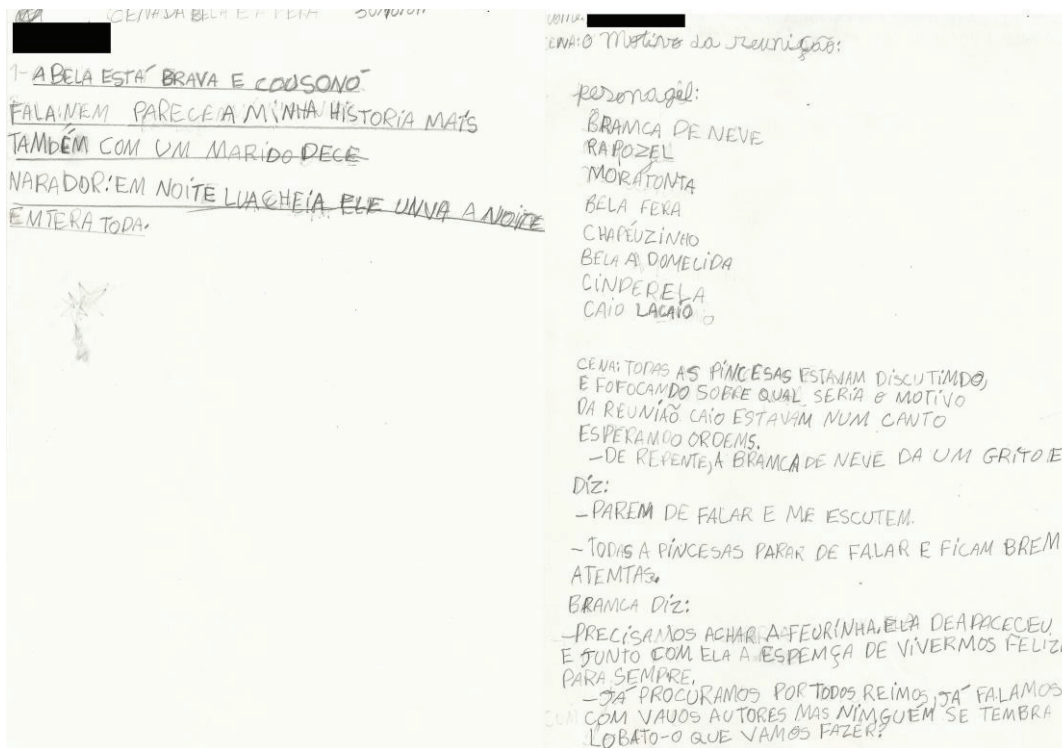 CENA DA BELA E A FERA
1- A BELA ESTÁ BRAVA E COUSONO
FALA:NEM PARECE A MINHA HISTORIA MAIS
TAMBÉM COM UM MARIDO DECE
NARADOR:EM NOITE LUACHEIA ELE UNVA A NOITE
EMTERA TODA.
CENA:O Motivo da reunição:
personagêl:
BRAMCA DE NEVE
RAPOZEL
MORATONTA
BELA FERA
CHAPÉUZINHO
BELA A DOMELIDA
CINDERELA
CAIO LACAIO
CENA: TODAS AS PINCESAS ESTAVAM DISCUTIMDO,
E FOFOCAMDO SOBRE QUAL SERIA O MOTIVO
DA REUNIÃO. CAIO ESTAVAM NUM CANTO
ESPERAMDO ORDEMS.
-DE REPENTE, A BRAMCA DE NEVE DA UM GRITO E
DIZ:
-PAREM DE FALAR E ME ESCUTEM.
-TODAS A PINCESAS PARAR DE FALAR E FICAM BREM
ATEMTAS.
BRAMCA DIZ:
-PRECISAMOS ACHAR A FEURINHA. ELA DEAPACECEU
E JUNTO COM ELA A ESPEMÇA DE VIVERMOS FELIZ
PARA SEMPRE.
-JÁ PROCURAMOS POR TODOS REIMOS, JÁ FALAMOS
COM VAUOS AUTORES MAS NIMGUÉM SE TEMBRA
LOBATO-O QUE VAMOS FAZER?